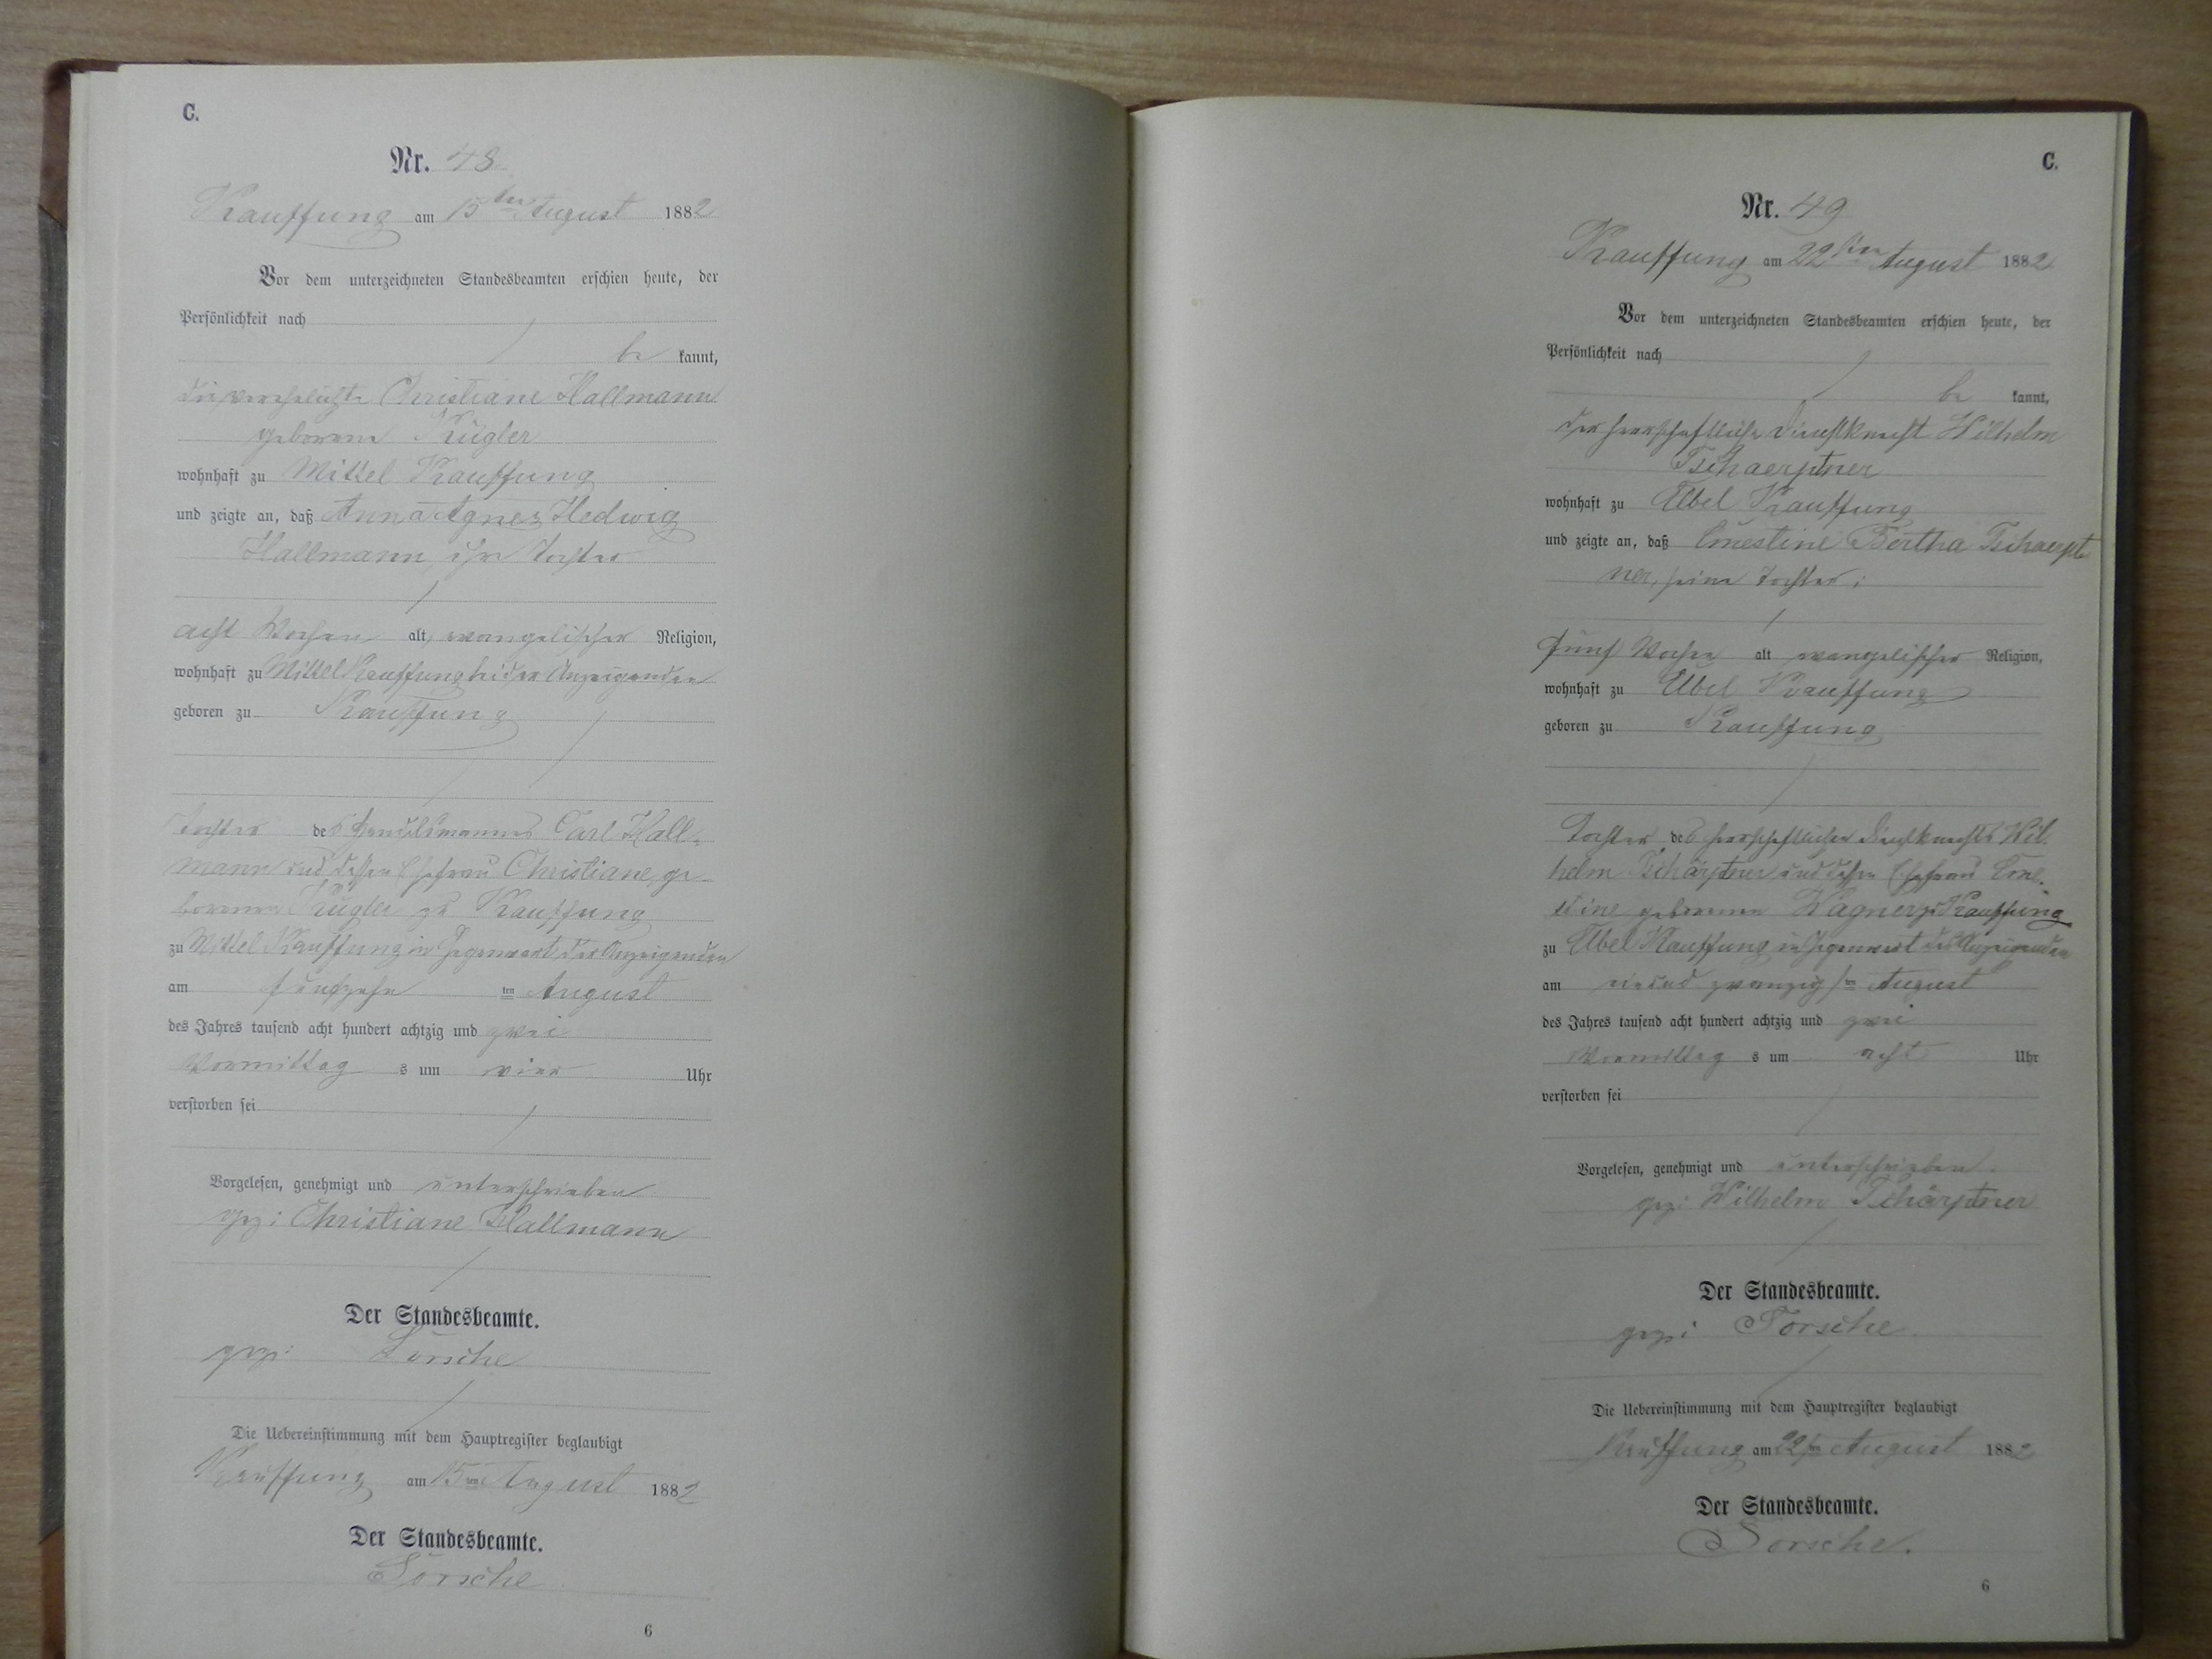 C.
Nr. 48
Kauffung am 15ten August 1882
Vor dem unterzeichneten Standesbeamten erschien heute, der
Persönlichkeit nach
be kannt,
die verehelichte Christiane Hallmann
geborene Kügler
wohnhaft zu Mittel Kauffung
und zeigte an, daß Anna Agnes Hedwig
Hallmann, ihre Tochter
acht Wochen alt, evangelischer Religion,
wohnhaft zu Mittel Kauffung bei der Anzeigenden
geboren zu Kauffung
Tochter des Handelsmannes Carl Hall-
mann und dessen Ehefrau Christiane, ge-
borenen Kügler zu Kauffung
zu Mittel Kauffung in Gegenwart der Anzeigenden
am fünfzehn ten August
des Jahres tausend acht hundert achtzig und zwei
Vormittag s um vier Uhr
verstorben sei
Vorgelesen, genehmigt und unterschrieben.
gez: Christiane Hallmann
Der Standesbeamte.
gez:
Die Uebereinstimmung mit dem Hauptregister beglaubigt
Kauffung am 15ten August 1882
Der Standesbeamte.
6
C.
Nr. 49
Kauffung am 22sten August 1882
Vor dem unterzeichneten Standesbeamten erschien heute, der
Persönlichkeit nach
be kannt,
der herrschaftliche Dienstknecht Wilhelm
Tschaerptner
wohnhaft zu Kauffung
und zeigte an, daß Ernestine Bertha Tschaerpt
ner, seine Tochter;
fünf Wochen alt evangelischer Religion,
wohnhaft zu Kauffung
geboren zu Kauffung
Tochter des herrschaftlichen Dienstknechts Wil-
helm Tschärptner und dessen Ehefrau Erne-
stine geborenen Wagner zu Kauffung
zu Kauffung in Gegenwart des Anzeigenden
am zwanzig sten August
des Jahres tausend acht hundert achtzig und zwei
Vormittag s um acht Uhr
verstorben sei
Vorgelesen, genehmigt und unterschrieben.
gez: Wilhelm Tschärptner
Der Standesbeamte.
gez:
Die Uebereinstimmung mit dem Hauptregister beglaubigt
Kauffung am 22sten August 1882
Der Standesbeamte.
6